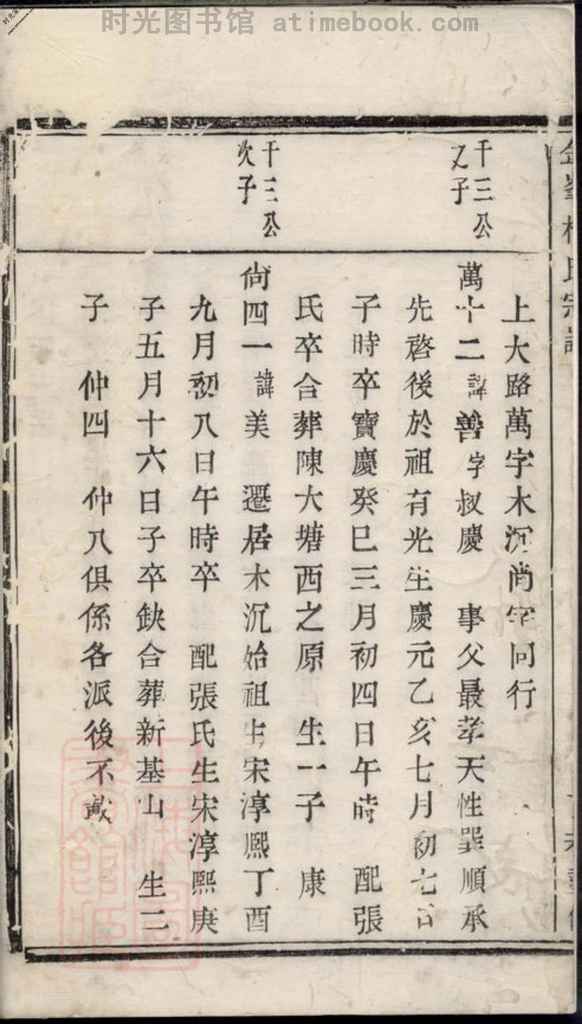 时光图书馆 atimebook.com
上大路萬字木沉尚字同行
千三公
之子
萬十二 諱善字叔慶 事父最孝天性巽順承
先啓後於祖有光生慶元乙亥七月初七日
子時卒寶慶癸巳三月初四日午時 配張
氏卒合葬陳大塘西之原 生一子 康
千三公
次子
尚四一 諱美 遷居木沉始祖生宋淳熙丁酉
九月初八日午時卒 配張氏生宋淳熙庚
子五月十六日子卒缺合葬新基山 生二
子 仲四 仲八俱係各派後不載